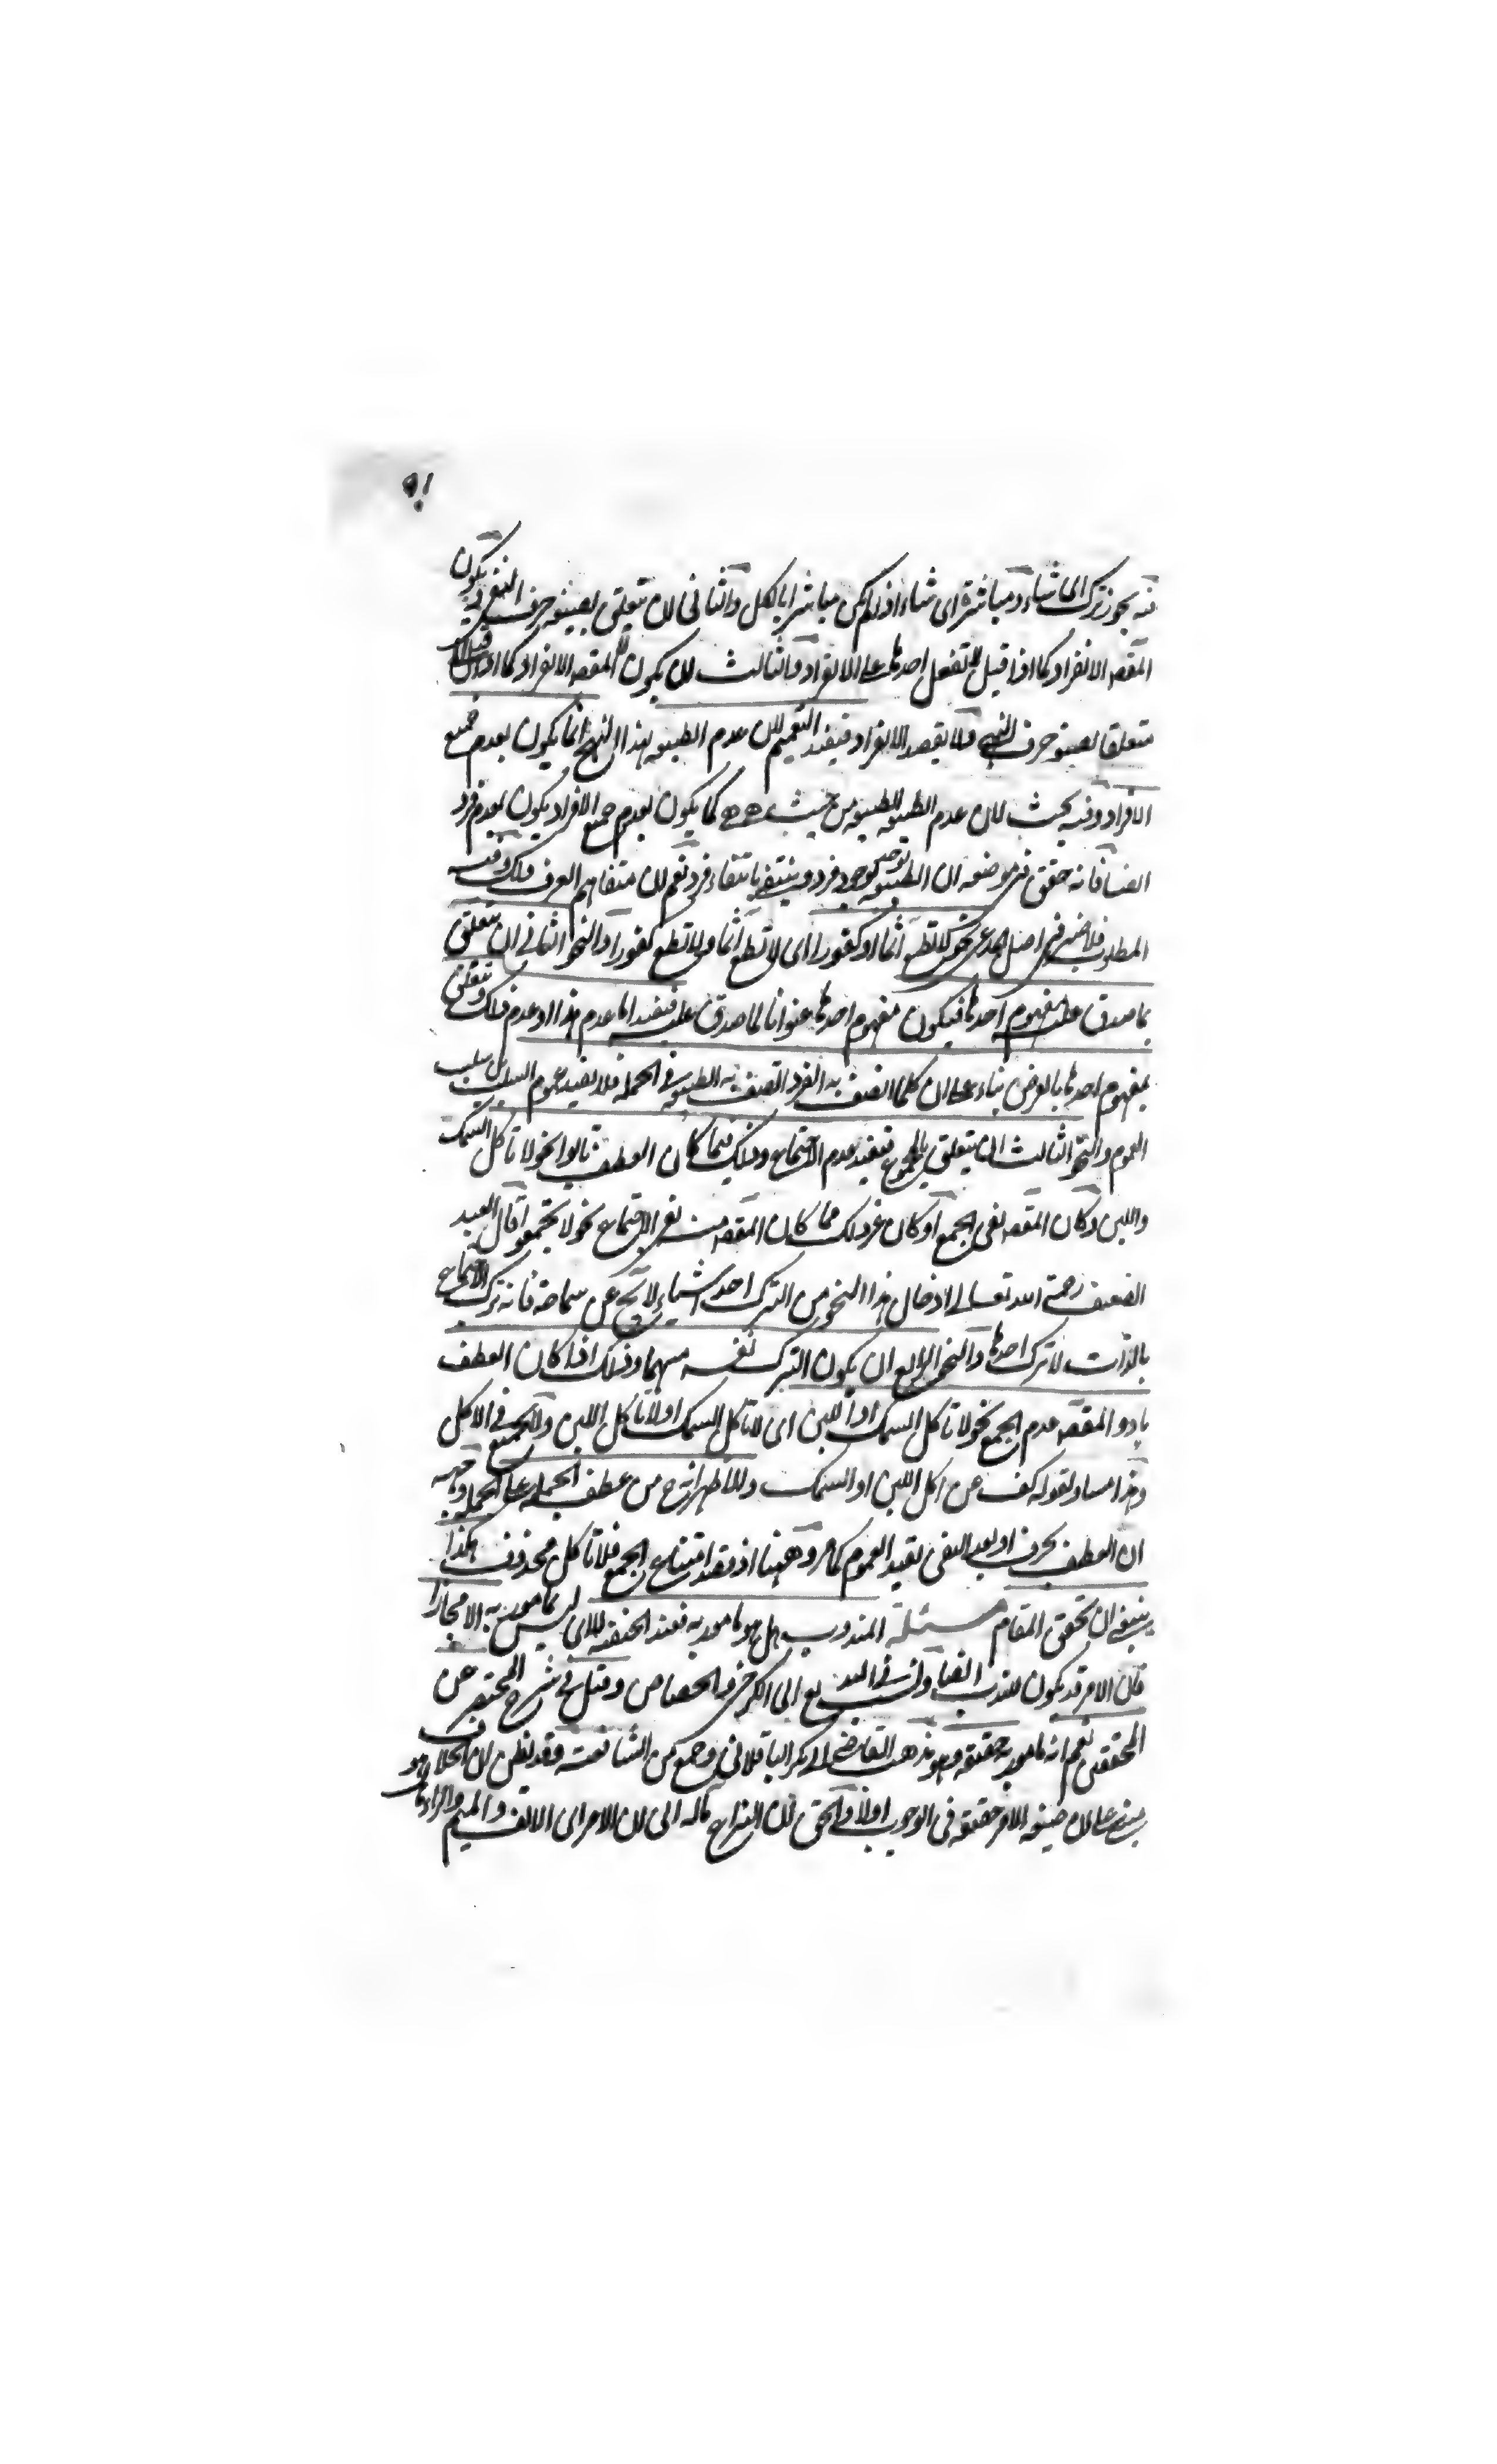 ٩١
منه يجوز ترك اى شاء ومباشرة اى شاء اذا لم يكن مباشرا بالكل والثانى ان يتعلق بصيغة حرف النفى ويكون
المقصد الانفراد كما اذا قيل لا تفعل احدهما على الانفراد والثالث ان يكون المقصد الانفراد كما اذا كان
متعلقا بصيغة حرف النهى ولا يقصد الانفراد فيفيد التعميم لان عدم الطبيعة بهذا النهج انما يكون بعدم جميع
الافراد وفيه بحث لان عدم الطبيعة للطبيعة من حيث هى هى كما يكون بعدم جميع الافراد يكون بعدم فرد
ايضا فانه حقق فى موضعه ان الطبيعة توجد بوجود فرد وينتفى بانتفاء فرد نعم ان متفاهم العرف ذلك وفيه
المطلوب فلا ضير فى اصل المدعى نحو لا تطع آثما او كفورا اى لا تطع آثما ولا تطع كفورا والنحو الثانى ان يتعلق
بما صدق عليه مفهوم احدهما فيكون مفهوم احدهما عنوانا لما صدق عليه فيفيد اما عدم هذا او عدم ذلك ويتعلق
بمفهوم احدهما بالعرض بناء على ان كلما اتصف به الفرد اتصف به الطبيعة فى الجملة فلا يفيد عموم السلب بل سلب
العموم والنحو الثالث ان يتعلق بالمجموع فيفيد عدم الاجتماع وذلك فيما كان العطف بالواو نحو لا تأكل السمك
واللبن وكان المقصد نفى الجمع او كان غير ذلك مما كان المقصد منه نفى الاجتماع نحو لا تجتمعوا قال العبد
الضعيف رحمة الله تعالى ادخال هذا النحو من الترك احد اشياء لا يخ عن سماحة فانه ترك الاجتماع
بالذات لا ترك احدهما والنحو الرابع ان يكون الترك نفسه مبهما وذلك اذا كان العطف
باو والمقصد عدم الجمع نحو لا تأكل السمك او اللبن اى لا تأكل السمك او لا تأكل اللبن ولا تجمع فى الاكل
وهذا مساو لقوله كف عن اكل اللبن او السمك والاظهر انه ح من عطف الجملة على الجملة وجهه
ان العطف بحرف او بعد النفى يفيد العموم كما مر وههنا اذ قصد امتناع الجمع فلا تأكل محذوف هكذا
ينبغى ان تحقق المقام مسئلة المندوب هل هو مامور به فعند الحنفية لا اى ليس بمامور به الا مجازا
فان الامر قد يكون للندب ايضا ونسب فى البديع الى الكرخى والجصاص وقيل فى شرح المختصر عن
المحققين نعم انه مامور به حقيقة وهو مذهب القاضى ابى بكر الباقلانى وجمع من الشافعية وقد يظن ان الخلاف
مبنى على ان صيغة الامر حقيقة فى الوجوب اولا والحق ان النزاع مآله الى ان الامر اى الالف والميم والراء هل هو